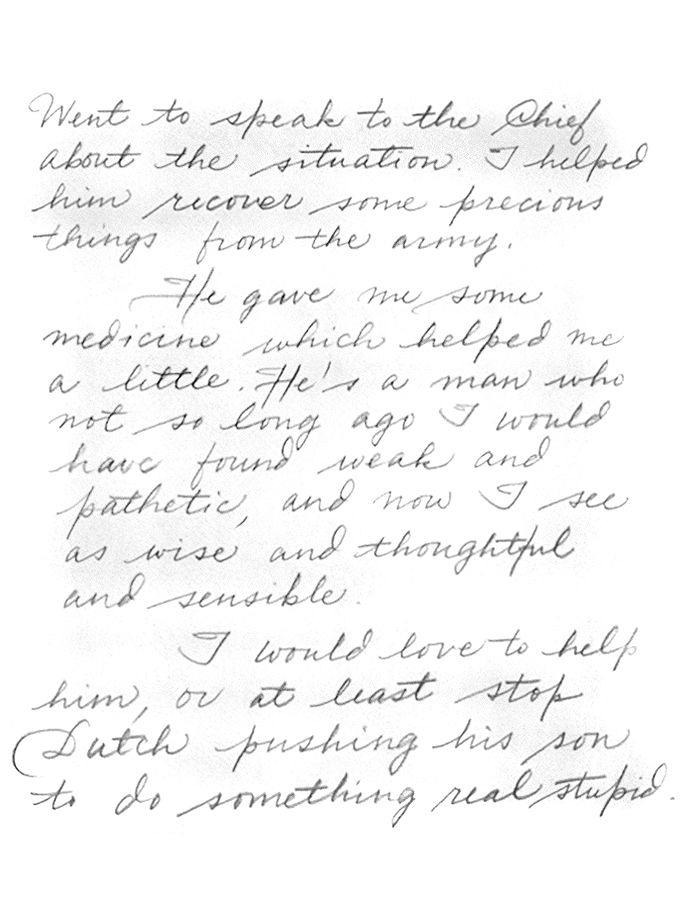 Went to speak to the Chief
about the situation. I helped
him recover some precious
things from the army.
He gave me some
medicine which helped me
a little. He's a man who
not so long ago I would
have found weak and
pathetic, and now I see
as wise and thoughtful
and sensible.
I would love to help
him, or at least stop
Dutch pushing his son
to do something real stupid.